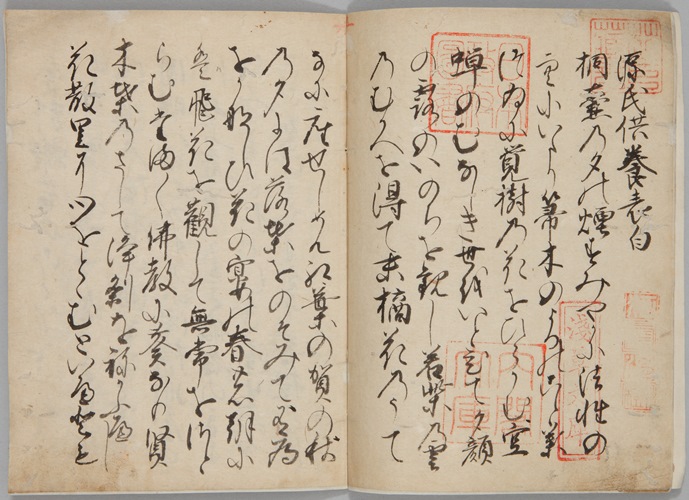 源氏供養表白
桐壺乃夕の煙すみやかに法性の
空にいたり箒木のよるのこと葉
つゐに覚樹乃花をひらかむ空
蝉のむなしき世をいとひて夕顔
の露のいのちを観し若紫乃雲
乃むかへを得て末摘花乃うて
なに座せしめん紅葉の賀の秋
乃夕には落葉をのそみて有為
をかなしひ花の宴の春の朝に
は飛花を觀して無常をさと
らむたま〱佛教にあふひなり賢
木葉乃さして浄刹を祢かふへし
花散里に心をとゝむといへとも